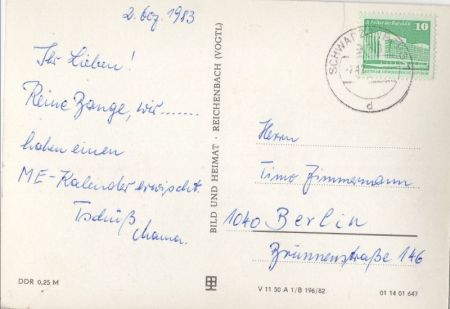 2. Dez. 1983
Ihr Lieben!
Keine Bange, wir.......
haben einen
ME-Kalender erwischt.
Tschüß
Mama.
DDR 0,25 M
BILD UND HEIMAT · REICHENBACH (VOGTL)
V 11 50 A 1/B 196/82
10
Herrn
Timo Zimmermann
1040 Berlin
Brunnenstraße 146
01 14 01 647